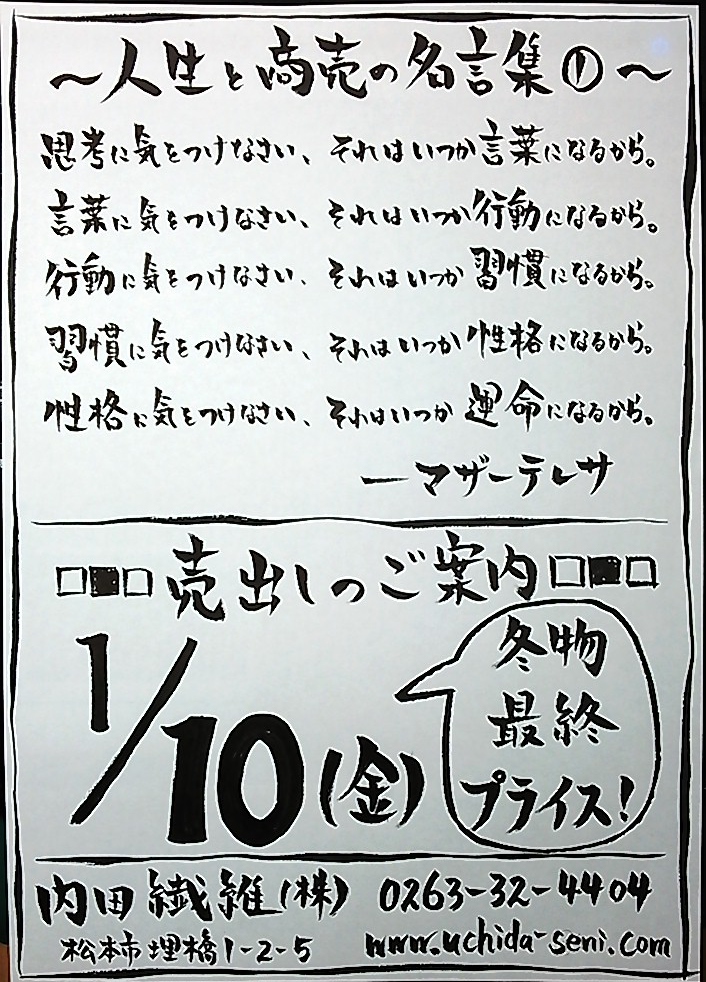 ～人生と商売の名言集①～
思考に気をつけなさい、それはいつか言葉になるから。
言葉に気をつけなさい、それはいつか行動になるから。
行動に気をつけなさい、それはいつか習慣になるから。
習慣に気をつけなさい、それはいつか性格になるから。
性格に気をつけなさい、それはいつか運命になるから。
ーマザーテレサ
□■□売出しのご案内□■□
1/10(金)
冬物
最終
プライス!
内田繊維(株) 0263-32-4404
松本市埋橋1-2-5 www.uchida-seni.com